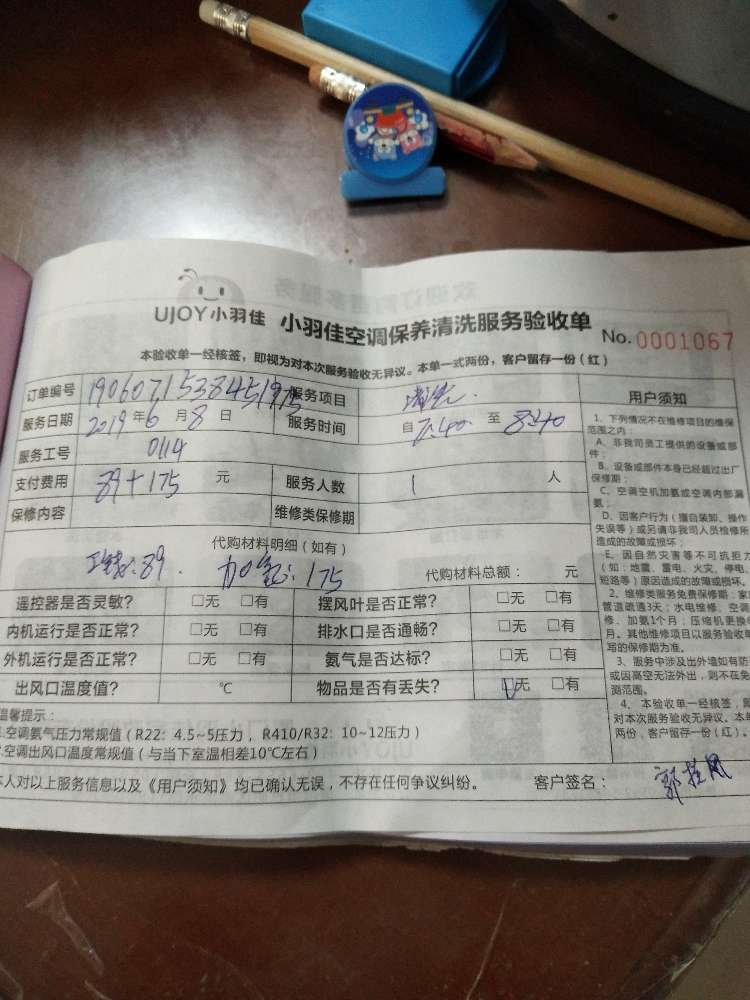 UJOY小羽佳 小羽佳空调保养清洗服务验收单 No. 0001067
本验收单一经核签，即视为对本次服务验收无异议。本单一式两份，客户留存一份（红）
订单编号 服务项目 清洗
服务日期 2019年6月8日 服务时间 自 7:40 至 8:40
服务工号 0114
支付费用 89+175 元 服务人数 1 人
保修内容 维修类保修期
代购材料明细（如有）
89. 加氨: 175 代购材料总额： 元
遥控器是否灵敏? □无 □有 摆风叶是否正常? □无 □有
内机运行是否正常? □无 □有 排水口是否通畅? □无 □有
外机运行是否正常? □无 □有 氨气是否达标? □无 □有
出风口温度值? ℃ 物品是否有丢失? □无 □有
温馨提示：
1.空调氨气压力常规值（R22: 4.5~5压力， R410/R32: 10~12压力）
2.空调出风口温度常规值（与当下室温相差10℃左右）
本人对以上服务信息以及《用户须知》均已确认无误，不存在任何争议纠纷。 客户签名： 郭桂凤
用户须知
1、下列情况不在维修项目的维保
范围之内：
A、非我司员工提供的设备或部
件；
B、设备或部件本身已经超过出厂
保修期；
C、空调空机加氨或空调内部漏
氨；
D、因客户行为（擅自装卸、操作
失误等）或另请非我司人员检修所
造成的故障或损坏；
E、因自然灾害等不可抗拒力
（如：地震、雷电、火灾、停电、
短路等）原因造成的故障或损坏。
2、维修类服务免费保修期：家
管道疏通3天；水电维修、空调
修、加氨1个月；压缩机更换
月。其他维修项目以服务验收单
写的保修期为准。
3、服务中涉及出外墙如有防
或因高空无法外出，则不在免
测范围。
4、本验收单一经核签，即
对本次服务验收无异议。本单
两份，客户留存一份（红）。